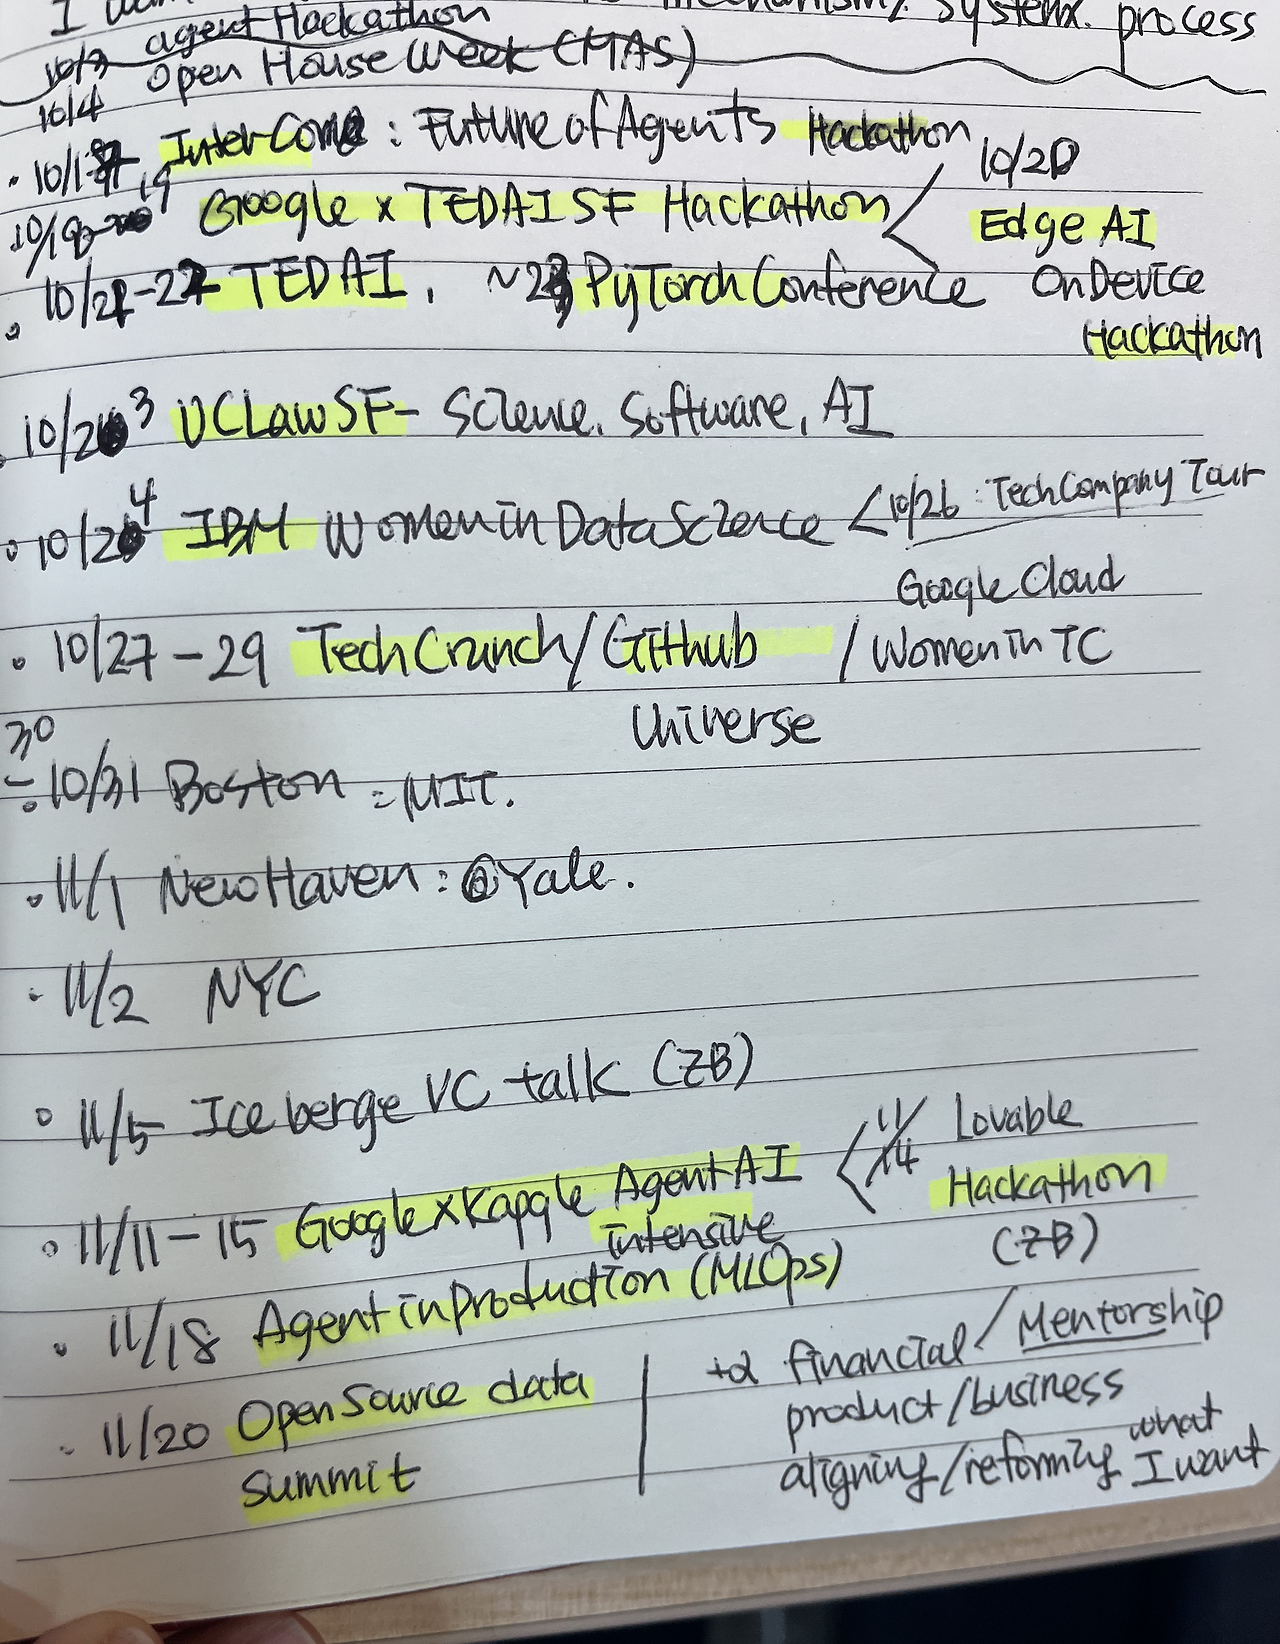 mechanism/ system. process
10/3 agent Hackathon
10/4 Open House Week (MAS)
InterCome : Future of Agents Hackathon
Google x TEDAI SF Hackathon < 10/20 Edge AI OnDevice Hackathon
10/21-22 TEDAI. ~23 PyTorch Conference
10/23 UCLawSF- Science. Software, AI
10/24 IBM Women in Data Science < 10/26 : Tech Company Tour
Google Cloud
• 10/27-29 TechCrunch/Github / Women in TC
Universe
30
- 10/31 Boston : MIT.
• 11/1 New Haven : @Yale.
• 11/2 NYC
• 11/5 Ice berge VC talk (ZB)
• 11/11-15 Google x Kapgle Agent AI intensive < 11/14 Lovable Hackathon (ZB)
• 11/18 Agent in production (MLOps)
• 11/20 Open Source data summit
+2 financial / Mentorship
product/business
aligning/reforming what I want